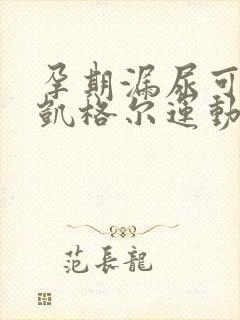 孕期漏尿可
凱格尔運動
范長龍